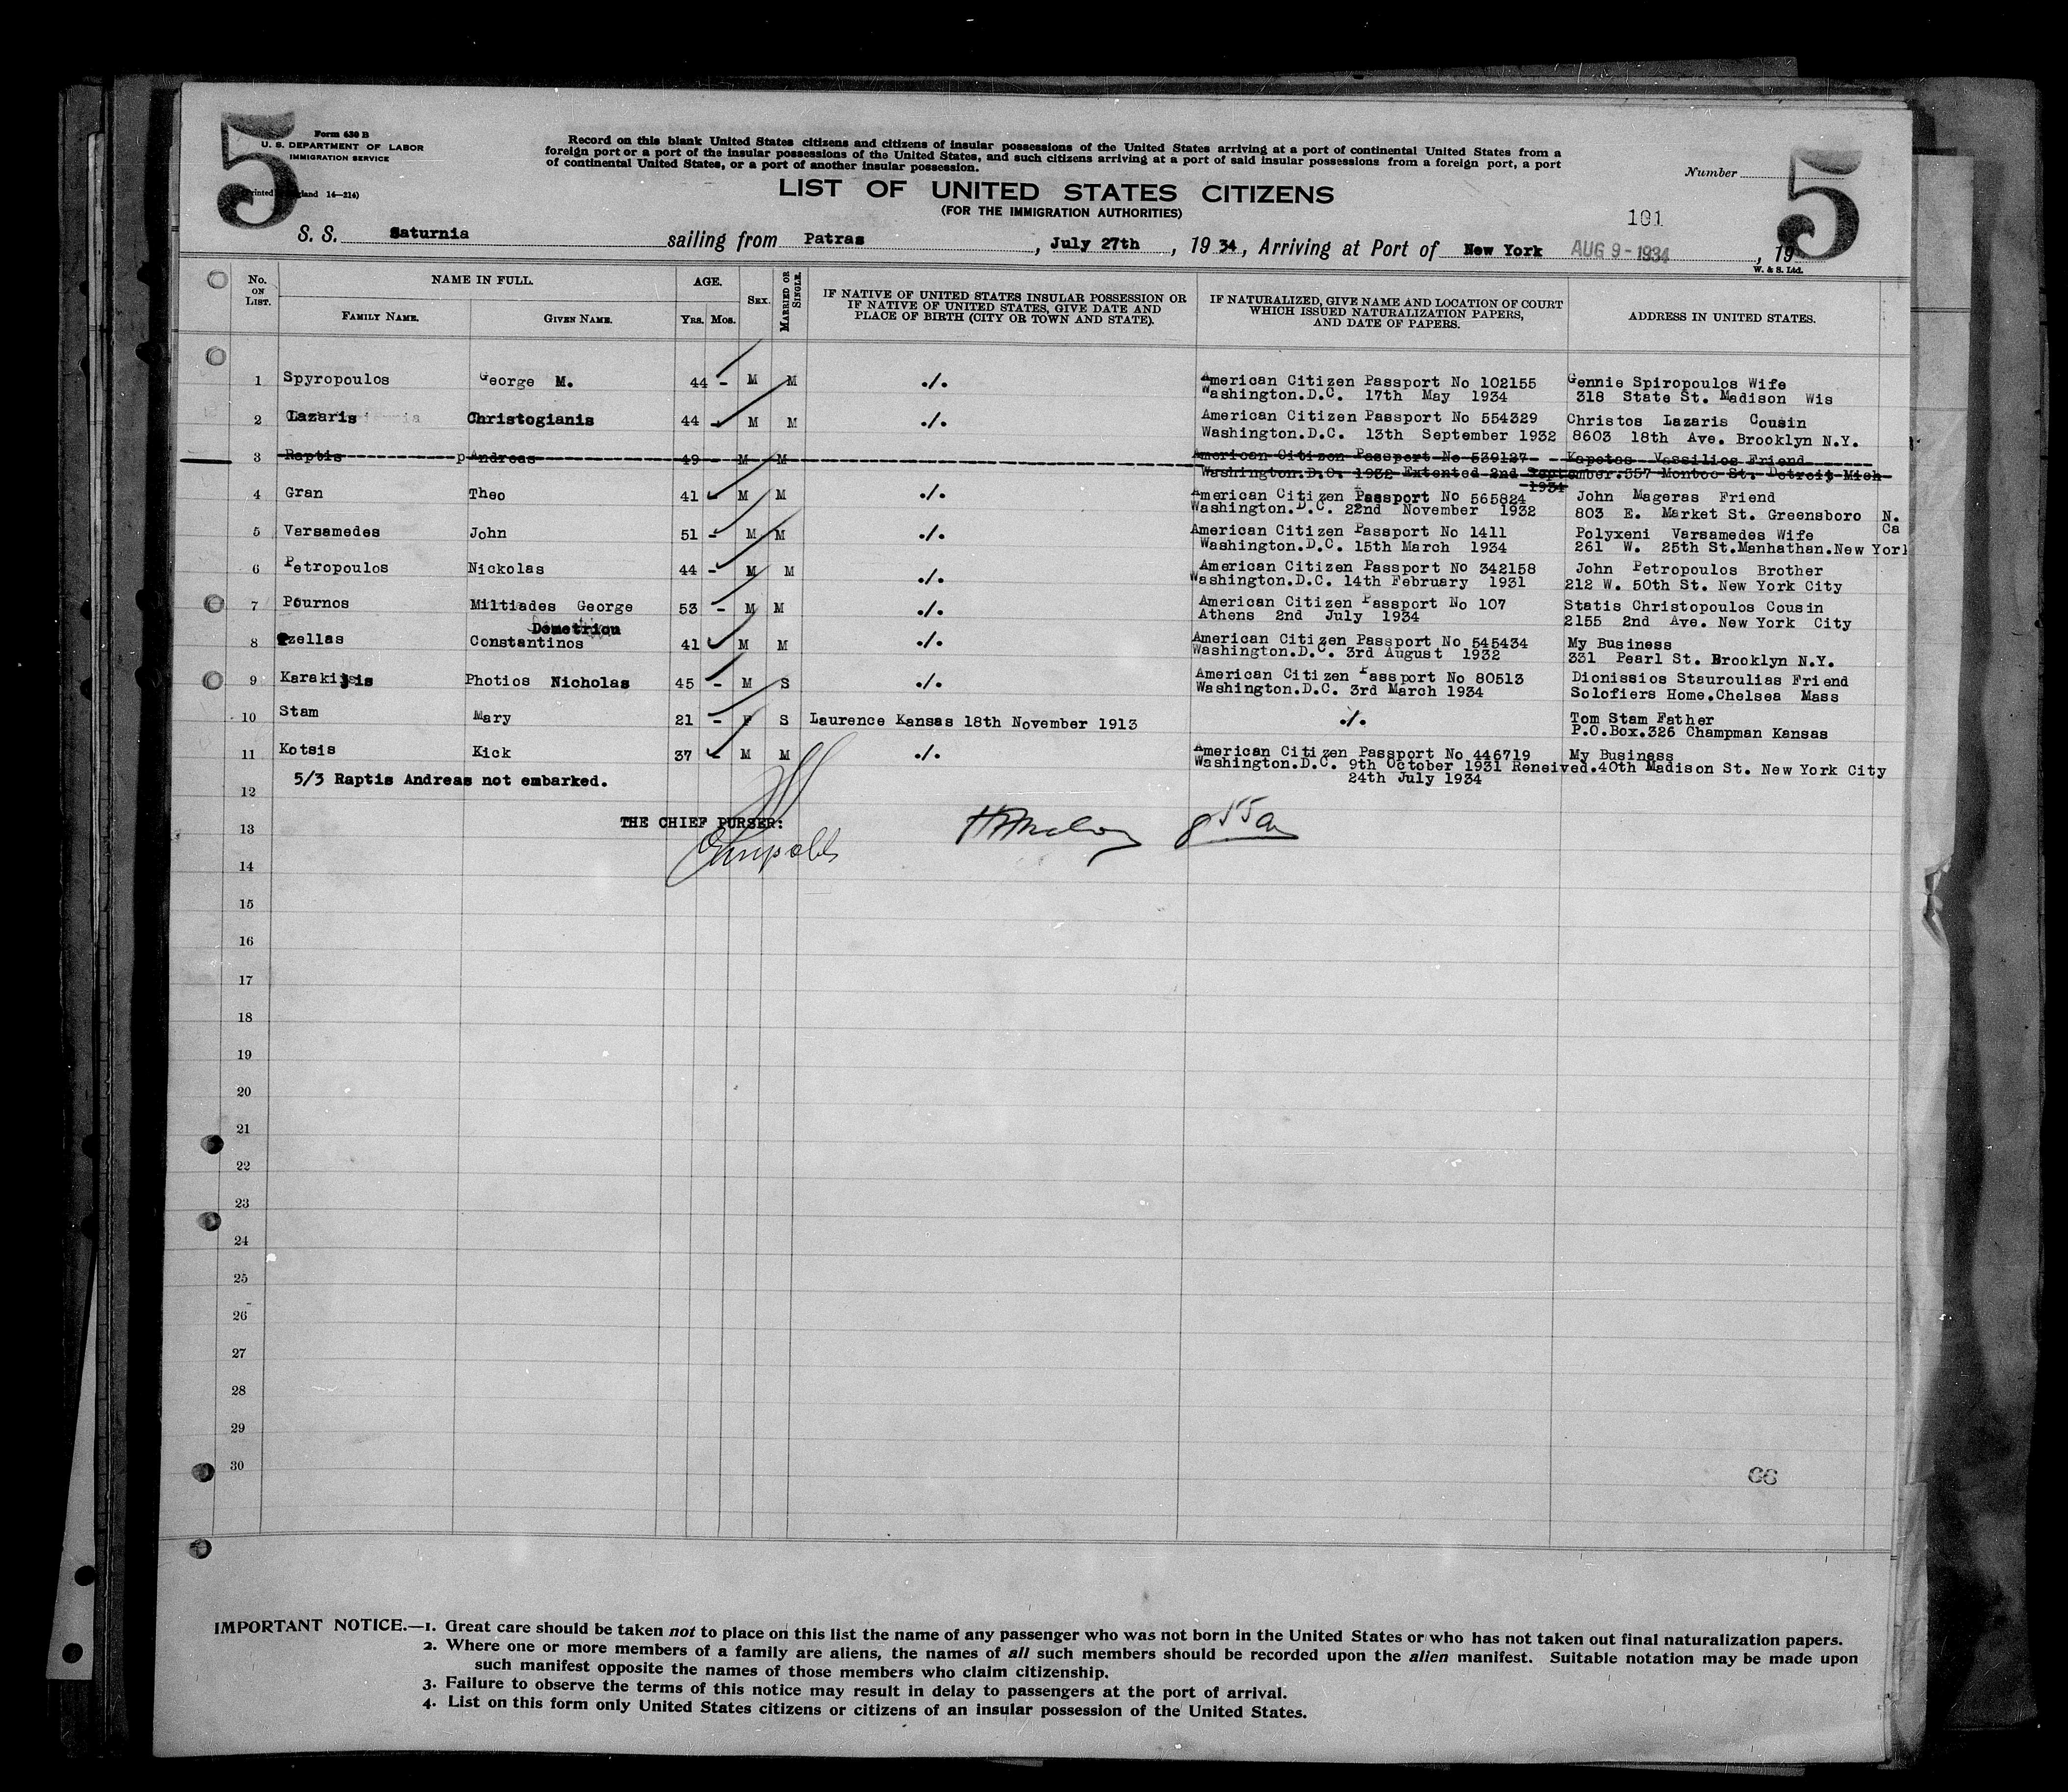 5
Form 630 B
U. S. DEPARTMENT OF LABOR
IMMIGRATION SERVICE
Record on this blank United States citizens and citizens of insular possessions of the United States arriving at a port of continental United States from a
foreign port or a port of the insular possessions of the United States, and such citizens arriving at a port of said insular possessions from a foreign port, a port
of continental United States, or a port of another insular possession.
Number
5
14—214)
LIST OF UNITED STATES CITIZENS
(FOR THE IMMIGRATION AUTHORITIES)
101
S. S. Saturnia sailing from Patras, July 27th, 1934, Arriving at Port of New York AUG 9-1934, 19
W. & S. Ltd.
No. ON LIST.
NAME IN FULL.
FAMILY NAME.
GIVEN NAME.
AGE.
YRS. MOS.
SEX.
MARRIED OR SINGLE.
IF NATIVE OF UNITED STATES INSULAR POSSESSION OR
IF NATIVE OF UNITED STATES, GIVE DATE AND
PLACE OF BIRTH (CITY OR TOWN AND STATE).
IF NATURALIZED, GIVE NAME AND LOCATION OF COURT
WHICH ISSUED NATURALIZATION PAPERS,
AND DATE OF PAPERS.
ADDRESS IN UNITED STATES.
1 Spyropoulos George M. 44 - M M ./. American Citizen Passport No 102155 Gennie Spiropoulos Wife
Washington.D.C. 17th May 1934 318 State St. Madison Wis
2 Lazaris Christogianis 44 - M M ./. American Citizen Passport No 554329 Christos Lazaris Cousin
Washington.D.C. 13th September 1932 8603 18th Ave. Brooklyn N.Y.
3 Raptis Andreas 49 - M M American Citizen Passport No 539127 Kapetas Vassilios Friend
Washington.D.C. 1932 Extented 2nd September.557 Montoc St. Detroit Mich
1934
4 Gran Theo 41 - M M ./. American Citizen Passport No 565824 John Mageras Friend
Washington.D.C. 22nd November 1932 803 E. Market St. Greensboro N.
Ca
5 Varsamedes John 51 - M M ./. American Citizen Passport No 1411 Polyxeni Varsamedes Wife
Washington.D.C. 15th March 1934 261 W. 25th St.Manhathan.New York
6 Petropoulos Nickolas 44 - M M ./. American Citizen Passport No 342158 John Petropoulos Brother
Washington.D.C. 14th February 1931 212 W. 50th St. New York City
7 Pournos Miltiades George 53 - M M ./. American Citizen Passport No 107 Statis Christopoulos Cousin
Athens 2nd July 1934 2155 2nd Ave. New York City
Demetriou
8 Pzellas Constantinos 41 - M M ./. American Citizen Passport No 545434 My Business
Washington.D.C. 3rd August 1932 331 Pearl St. Brooklyn N.Y.
9 Karakijis Photios Nicholas 45 - M S ./. American Citizen Passport No 80513 Dionissios Stauroulias Friend
Washington.D.C. 3rd March 1934 Solofiers Home.Chelsea Mass
10 Stam Mary 21 - F S Laurence Kansas 18th November 1913 ./. Tom Stam Father
P.O.Box.326 Champman Kansas
11 Kotsis Kick 37 - M M ./. American Citizen Passport No 446719 My Business
Washington.D.C. 9th October 1931 Reneived.40th Madison St. New York City
24th July 1934
5/3 Raptis Andreas not embarked.
12
THE CHIEF PURSER:
13
14
15
16
17
18
19
20
21
22
23
24
25
26
27
28
29
30
66
IMPORTANT NOTICE.—1. Great care should be taken not to place on this list the name of any passenger who was not born in the United States or who has not taken out final naturalization papers.
2. Where one or more members of a family are aliens, the names of all such members should be recorded upon the alien manifest. Suitable notation may be made upon
such manifest opposite the names of those members who claim citizenship.
3. Failure to observe the terms of this notice may result in delay to passengers at the port of arrival.
4. List on this form only United States citizens or citizens of an insular possession of the United States.